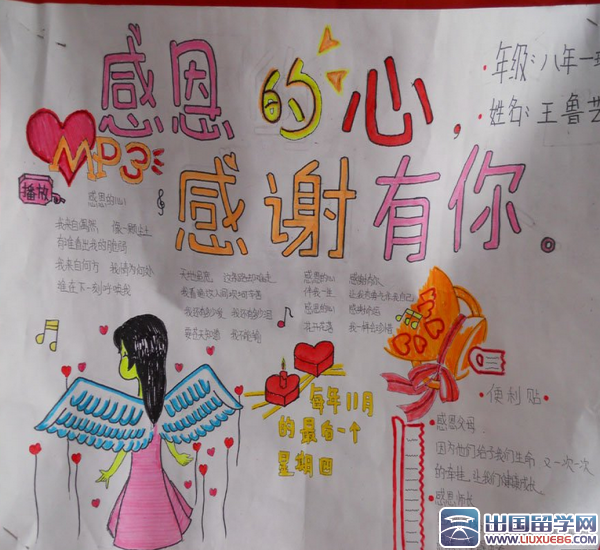 感恩的心,
感谢有你。
年级:八年一班
姓名:王鲁艺
MP3
播放
感恩的心
我来自偶然 像一颗尘土
有谁看出我的脆弱
我来自何方 我情归何处
谁在下一刻呼唤我
天地虽宽 这条路却难走
我看遍这人间坎坷辛苦
我还有多少爱 我还有多少泪
要苍天知道 我不认输
感恩的心 感谢有你
伴我一生 让我有勇气作我自己
感恩的心 感谢命运
花开花落 我一样会珍惜
每年11月
的最后一个
星期四
·便利贴·
·感恩父母
因为他们给予我们生命 又一次一次
的牵挂,让我们健康成长
·感恩师长
出国留学网
WWW.LIUXUE86.COM